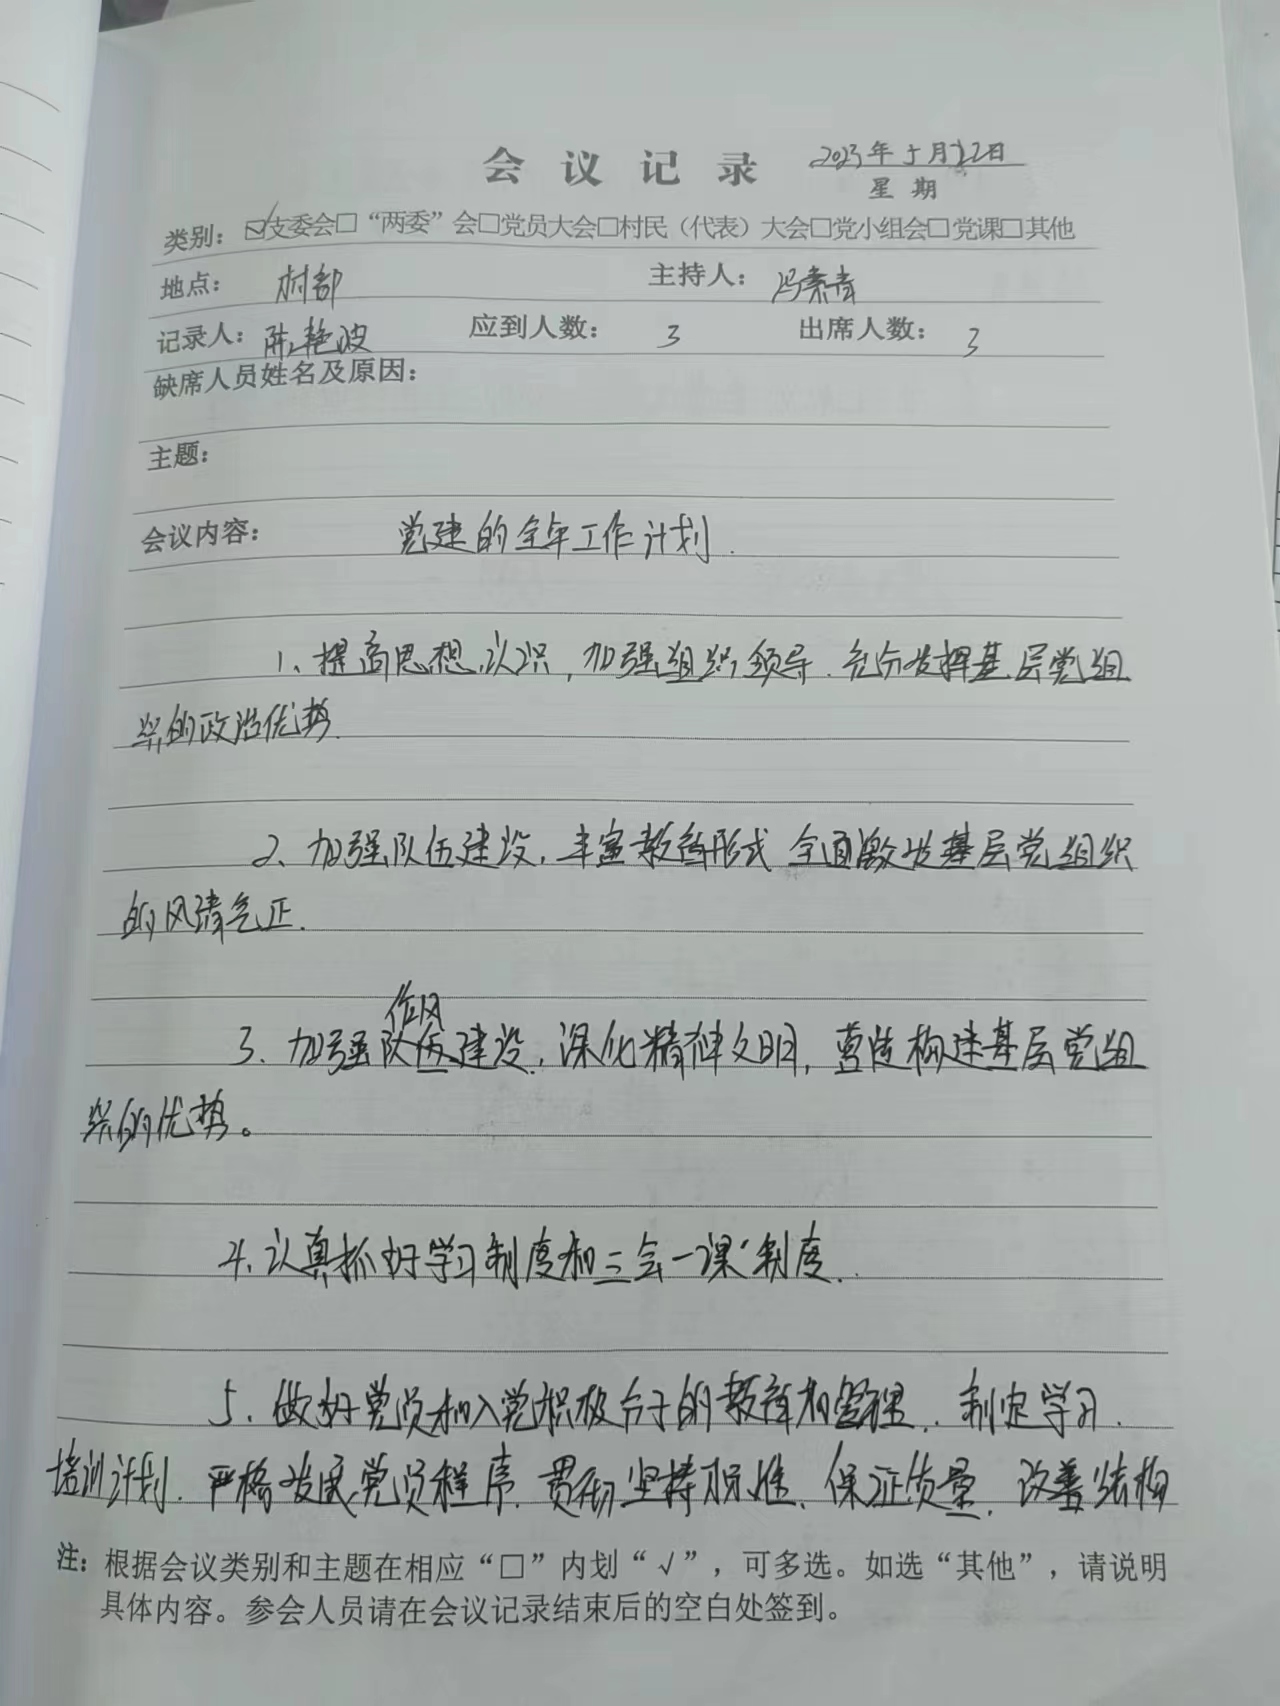 会议记录 2023年5月22日
星期
类别：☑支委会□“两委”会□党员大会□村民（代表）大会□党小组会□党课□其他
地点： 村部 主持人： 冯素青
记录人： 陈艳波 应到人数： 3 出席人数： 3
缺席人员姓名及原因：
主题：
会议内容： 党建的全年工作计划.
1、提高思想认识，加强组织领导.充分发挥基层党组
织的政治优势.
2、加强队伍建设，丰富教育形式 全面激发基层党组织
的风清气正.
作风
3、加强队伍建设，深化精神文明，营造构建基层党组
织的优势。
4、认真抓好学习制度和三会一课“制度.
5、做好党员和入党积极分子的教育和管理，制定学习.
培训计划.严格发展党员程序.贯彻坚持标准、保证质量、改善结构
注：根据会议类别和主题在相应“□”内划“√”，可多选。如选“其他”，请说明
具体内容。参会人员请在会议记录结束后的空白处签到。